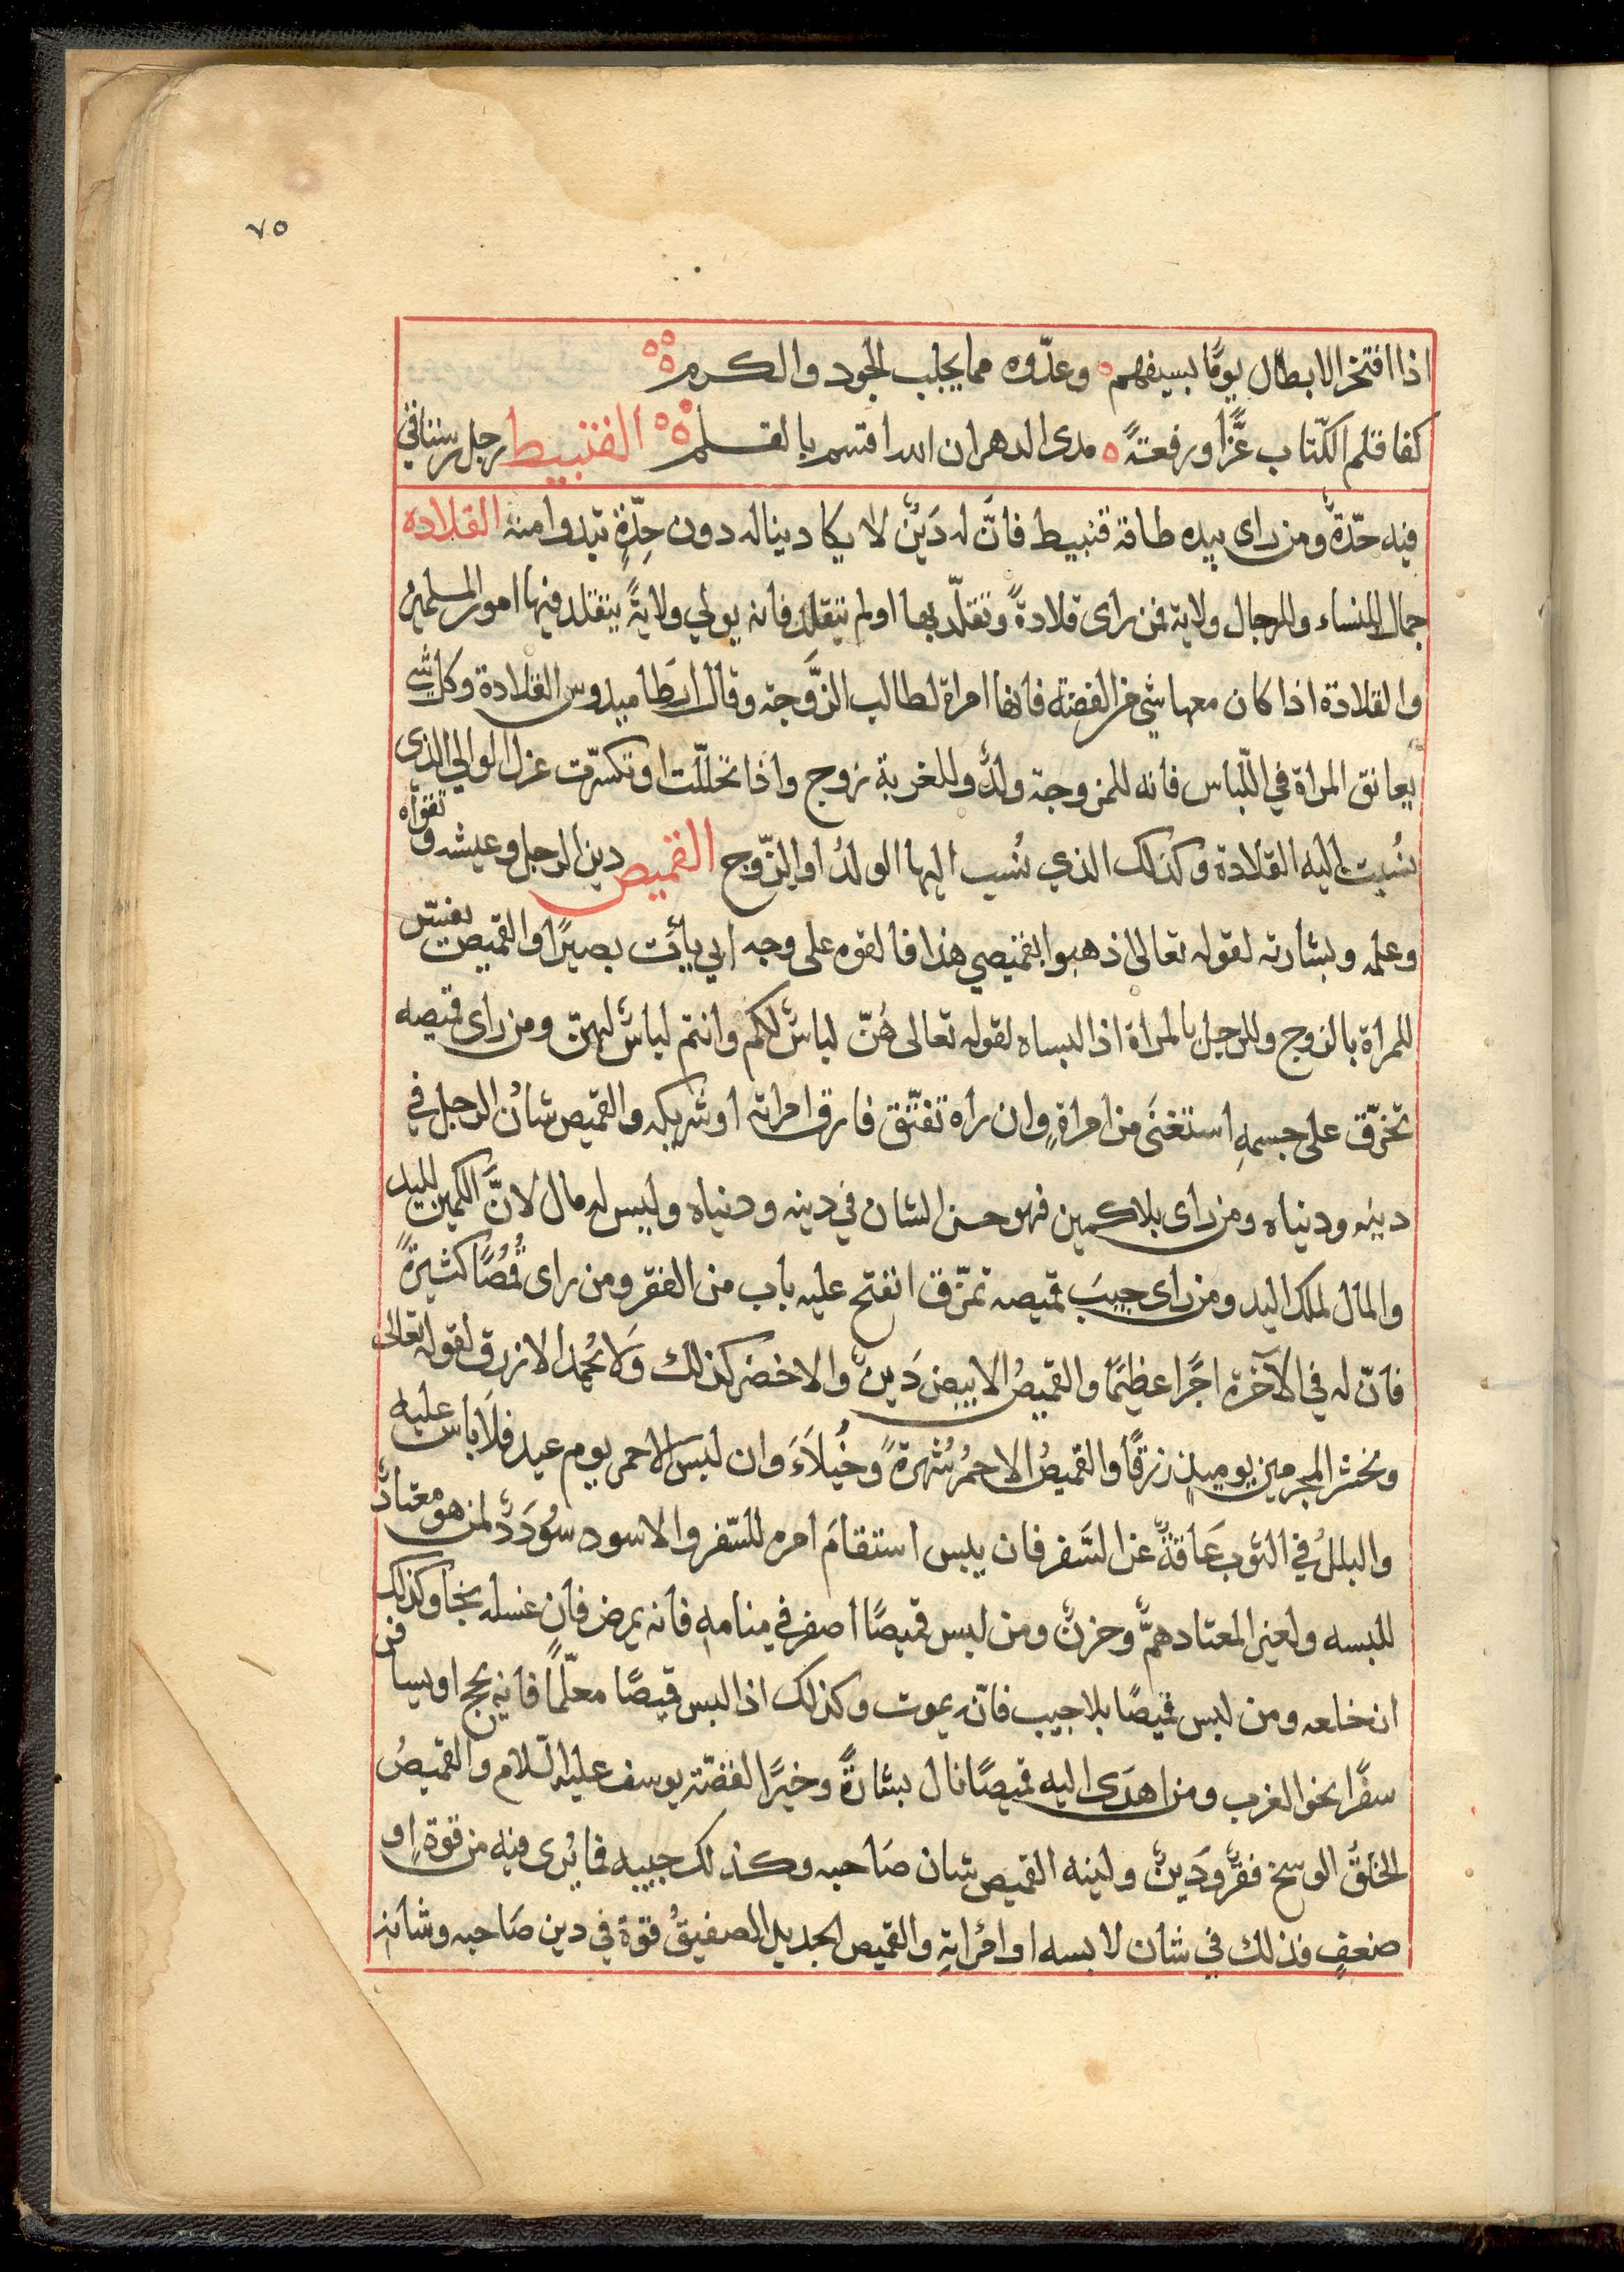 ٧٥
اذا افتخر الابطال يومًا بسيفهم ه وعدّوه مما يجلب الجود والكرم
كفا قلم الكتّاب عزًّا ورفعةً ه مدى الدهر ان الله اقسم بالقلم القنبيط رجل رستاقي
فيه حدّةٌ ومن راى بيده طاقة قنبيط فانّ له دَينٌ لا يكاد يناله دون حِدّةٍ تبدوا منه القلاده
جمال للنساء وللرجال ولاية فمن راى قلادةً وتقلّد بها او لم يتقلد فانه يولي ولايةً يتقلد فيها امور المسلمين
والقلادة اذا كان معها شي من الفضة فانها امراة لطالب الزَّوجة وقال ارطاميدوس القلادة وكل شي
يعانق المراة في اللّباس فانه للمزوجة ولدٌ وللغربة زوج واذا تخللّت او تكسّرت عزل الوالي الذى
نُسبت اليه القلادة وكذلك الذي نُسب اليها الولدُ او الزّوج القميص دين الرجل وعيشه وتقواه
وعلمه وبشارته لقوله تعالى اذهبوا بقميصي هذا فالقوه على وجه ابي يأت بصيرًا والقميص يفسّر
للمراة بالزوج وللرجل بالمراة اذا لبساه لقوله تعالى هُنّ لباسٌ لكم وانتم لباسٌ لهنّ ومن راى قميصه
تخرّق على جسمهِ استغنَى من امراةٍ وان راه تفتّق فارق امراته او شريكه والقميص شأنُ الرجل في
دينه ودنياه ومن راى بلا كمين فهو حسن الشان في دينه ودنياه وليس له مال لانَّ الكمين لليد
والمال لملك اليد ومن راى جيبَ قميصه تمزّق انفتح عليه باب من الفقر ومن راى قُمُصًا كثيرةً
فانّ له في الآخرة اجرًا عظيمًا والقميصُ الابيض دَينٌ والاخضر كذلك وَلا يُحمد الازرق لقوله تعالى
ونحشر المجرمين يوميذٍ زرقًا والقميصُ الاحمرُ شُهرةً وخُيلاءَ وان لبس الاحمر يوم عيد فلا باس عليه
والبللُ في الثوب عَاقةٌ عن السَّفر فان يبس استقامَ امره للسّفر والاسود سؤددٌ لمن هو معتادٌ
للبسه ولغير المعتاد همٌّ وحزنٌ ومن لبس قميصًا اصفر في منامهِ فانه يمرض فان غسله نجا وكذلك
ان خلعه ومن لبس قميصًا بلا جيب فانّه يموت وكذلك اذا لبس قميصًا معلّمًا فانه يحج او يسافر
سفرًا نحو الغرب ومن اهدَى اليه قميصًا نال بشارةً وخيرًا لقصّة يوسف عليه السّلام والقميصُ
الخلقُ الوسخ فقرٌ ودَينٌ ولبنه القميص شان صَاحبه وكذلك جيبه فما يُرى فيه من قوةٍ او
ضعفٍ فذلك في شان لابسه او امْراتهِ والقميص الجديد الصفيقُ قوة في دين صَاحبه وشانه